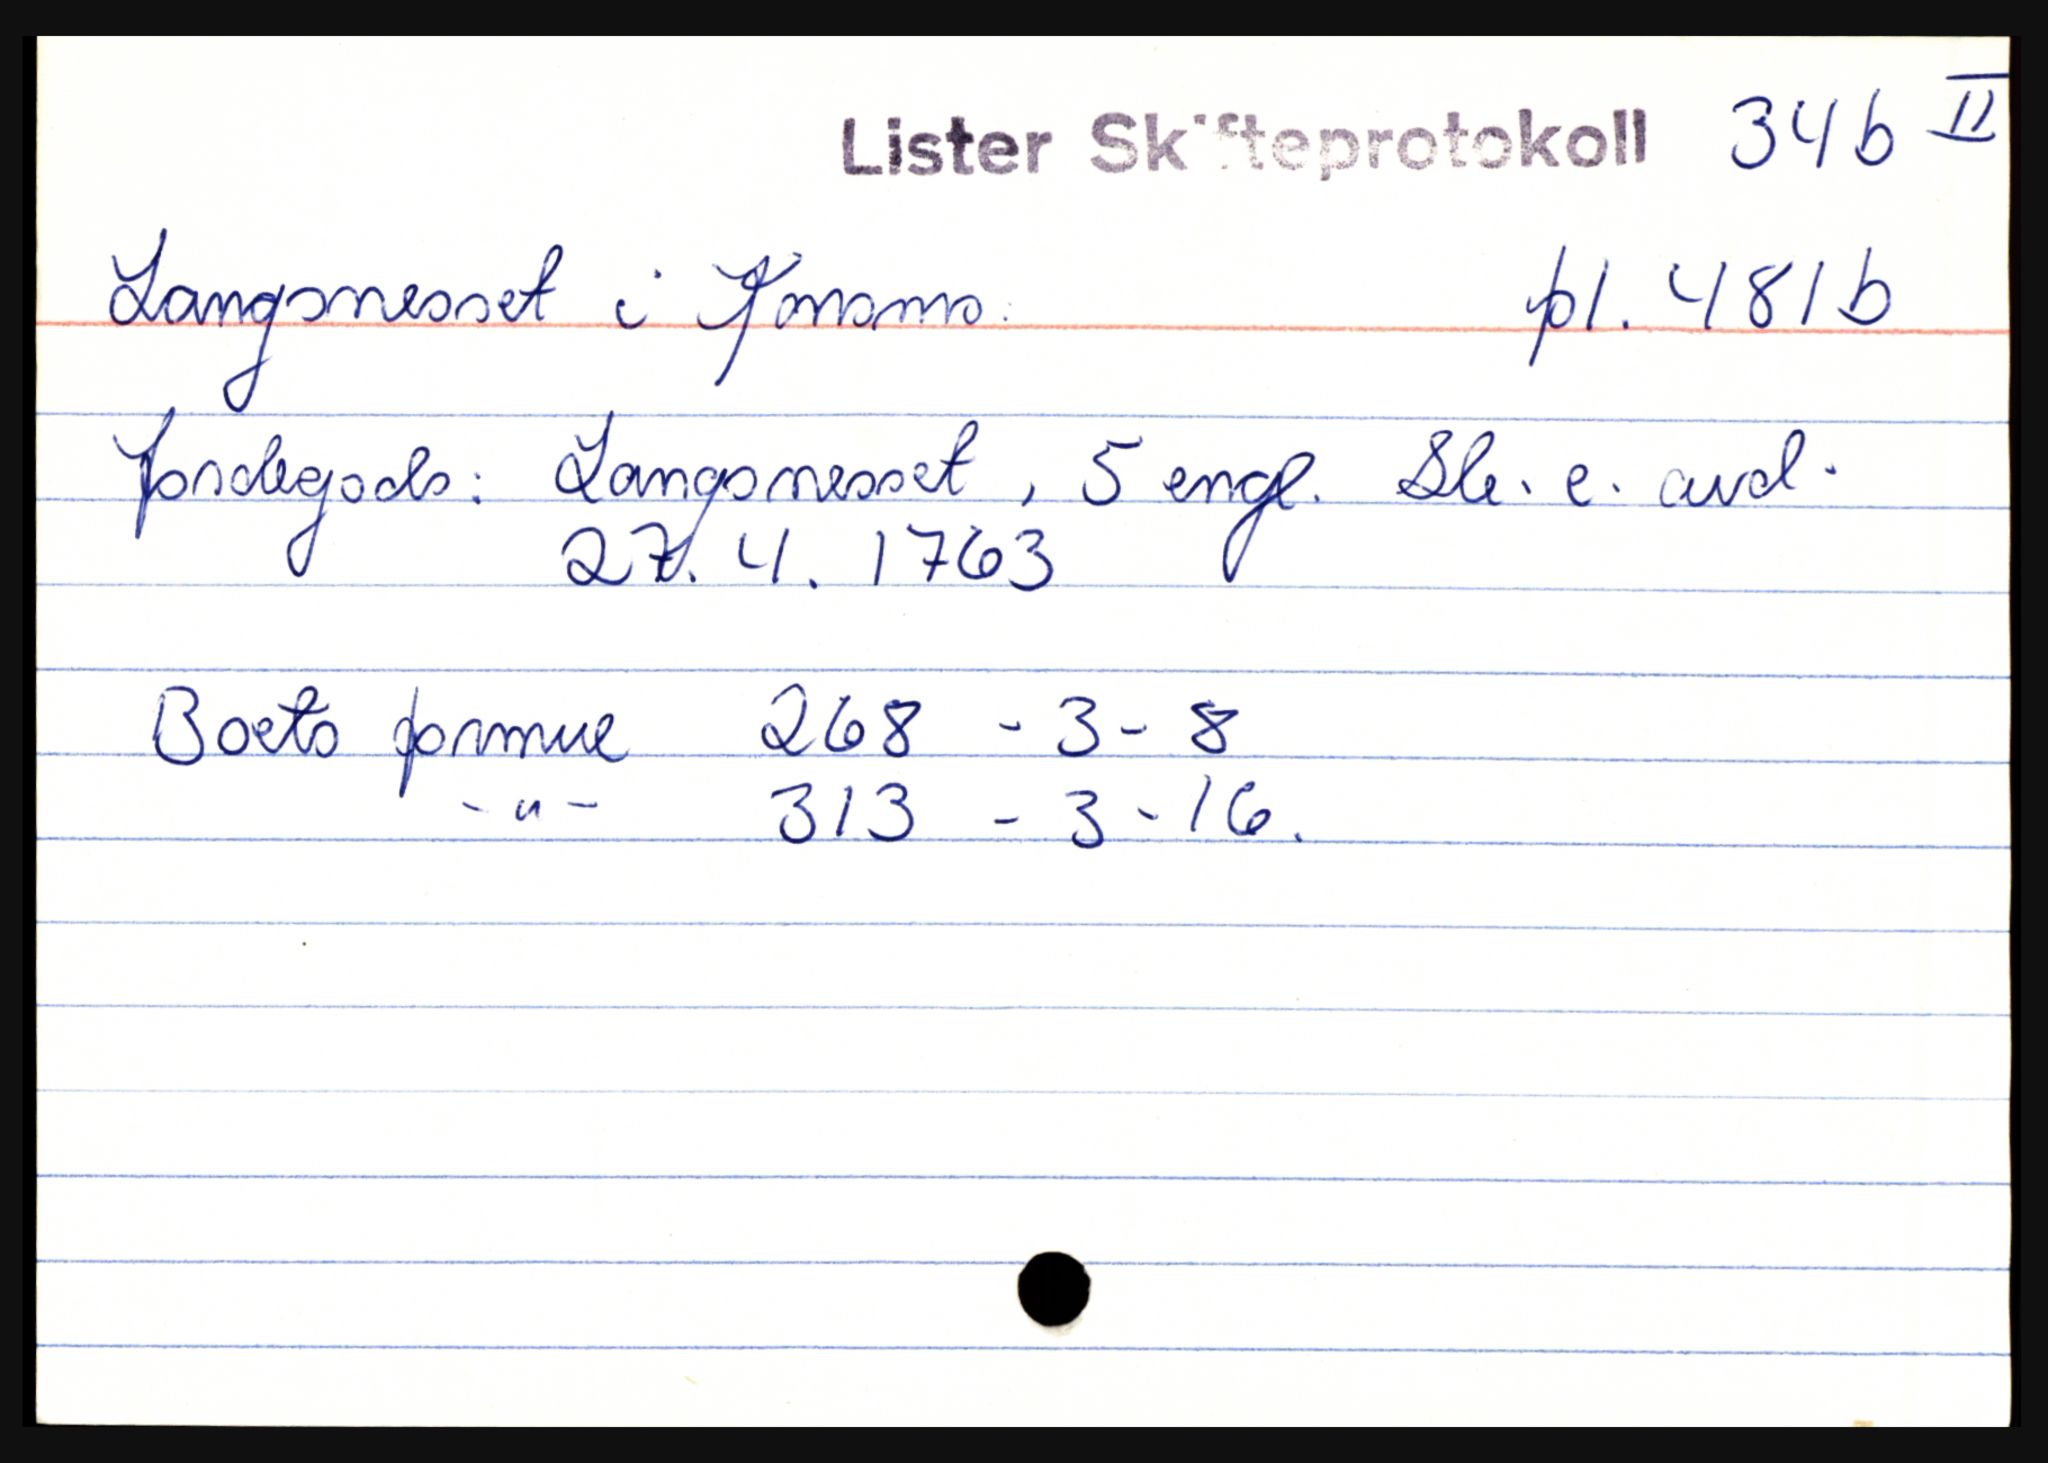 Lister Skifteprotokoll 34 b II
Langsnesset i Konsmo. pl. 481b
Jordegods: Langsnesset, 5 engl. Sk. e. avd.
27. 4. 1763
Boets formue 268 - 3 - 8
- " - 313 - 3 - 16.